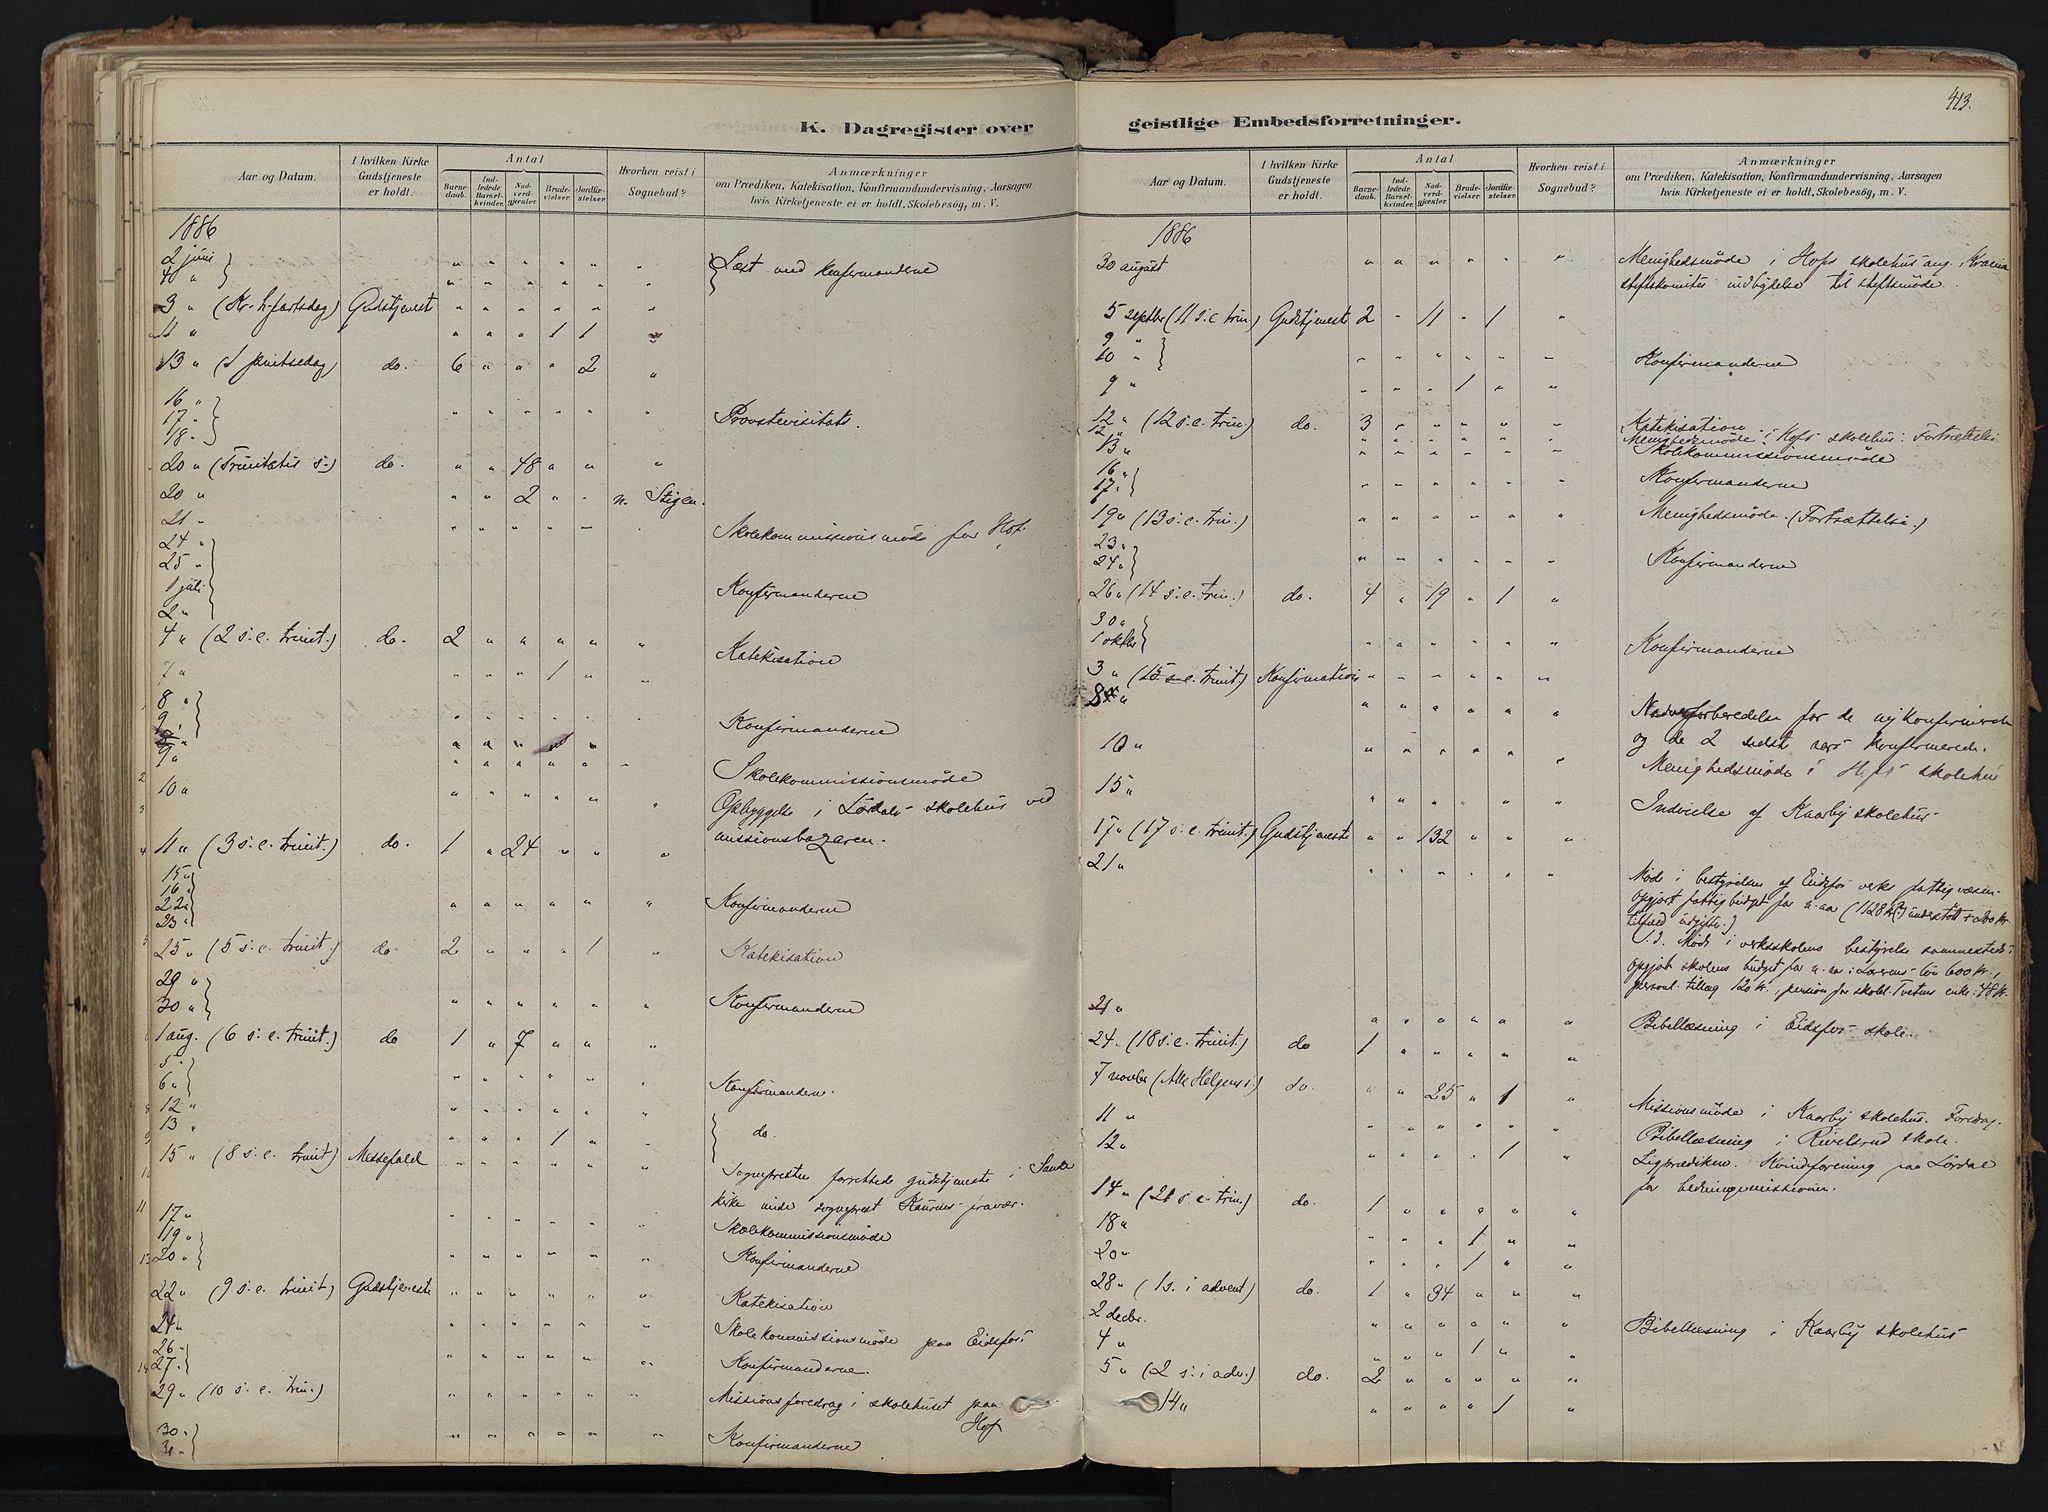 413.
K. Dagregister over
Aar og Datum. I hvilken Kirke Gudstjeneste er holdt. Antal Barnedaab. Indledede Barselkvinder. Nadverdgjæster. Brudevielser. Jordfæstelser. Hvorhen reist i Sognebud? Anmærkninger om Prædiken, Katekisation, Konfirmandundervisning, Aarsagen hvis Kirketjeneste ei er holdt, Skolebesøg, m. V.
1886
2 juni
4 " } " " " " " " Læst med konfirmanderne
3 " (Kr. h-fartsdag) Gudstjenest " " " " " "
11 " " " " 1 1 "
13 " (1 pintsedag) do. 6 " " " 2 "
16 "
17 "
18 " } " " " " " " Provstevisitats.
20 " (Trinitatis s.) do. " " 48 " " "
20 " " " 2 " " n. Stigen.
21 " " " " " " Skolekommissionsmøde for Hof.
24 "
25 "
1 juli
2 " } Konfirmanderne
4 " (2 s. e. trinit.) do. 2 " " " " " Katekisation
7 " " " " 1 " "
8 "
9 " } " " " " " Konfirmanderne
9 " " " " " " " Skolekommissionsmøde
10 " " " " " " " Opbyggelse i Lørdals skolehus ved
missionsbazaren.
11 " (3 s. e. trinit.) do. 1 " 24 " " "
15 "
16 "
22 "
23 " } " " " " " " Konfirmanderne
25 " (5 s. e. trinit.) do. 2 " " " 1 " Katekisation
29 "
30 " } " " " " " " Konfirmanderne
1 aug. (6 s. e. trinit.) do 1 " 7 " " "
5 "
6 " } " " " " " " Konfirmanderne.
12 " " " " " " "
13 " " " " 1 " " do.
15 " (8 s. e. trinit) Messefald " " " " " " Sognepresten forrettede gudstjeneste i Sande
kirke under sogneprest Kaurins fravær.
17 " " " " " " " Skolekommissionsmøde
19 "
20 " } " " " " " " Konfirmanderne
22 " (9 s. e. trinit) Gudstjeneste " " " " " " Katekisation
24 " " " " " " " Skolekommissionsmøde paa Eidsfos
26 "
27 " } " " " " " " Konfirmanderne.
29 " (10 s. e. trin.) " " " " " " Missionsforedrag i skolehuset paa
Hof
30 "
31 " } " " " " " " Konfirmanderne
geistlige Embedsforretninger.
Aar og Datum. I hvilken Kirke Gudstjeneste er holdt. Antal Barnedaab. Indledede Barselkvinder. Nadverdgjæster. Brudevielser. Jordfæstelser. Hvorhen reist i Sognebud? Anmærkninger om Prædiken, Katekisation, Konfirmandundervisning, Aarsagen hvis Kirketjeneste ei er holdt, Skolebesøg, m. V.
1886
30 august " " " " " " Menighedsmøde i Hofs skolehus ang. Krania
stiftskomites indbydelse til stiftsmøde.
5 septbr (11 s. e. trin.) Gudstjeneste 2 " 11 " 1 "
9 "
10 " } " " " " " " Konfirmanderne
9 " " " " 1 " "
12 " (12 s. e. trin.) do. 3 " " " " " Katekisation
12 " " " " " " " Menighedsmøde i Hofs skolehus: Fortsættelse
13 " " " " " " " Skolekommissionsmøde
16 "
17 " } " " " " " " Konfirmanderne
19 " (13 s. e. trin.) " " " " " " Menighedsmøde. (Fortsættelse.)
23 "
24 " } " " " " " " Konfirmanderne
26 " (14 s. e. trin.) do. 4 " 19 " 1 "
30 "
1 oktbr } " " " " " " Konfirmanderne
3 " (15 s. e. trinit.) Konfirmation " " " " " "
8 " " " " " " " Nadverforberedelse for de nykonfirmerede
og de 2 sidst aars konfirmerede.
10 " " " " " " " Menighedsmøde i Hofs skolehus
15 " " " " " " " Indvielse af Kaarby skolehus
17 " (17 s. e. trinit.) Gudstjeneste " " 132 " " "
21 " " " " " " " Møde i bestyrelsen af Eidsfos verks fattigvæsen.
opgjort fattigbudget for n. aar (1128 kr understøt. + 200 kr.
tilfæld. udgifter.)
Møde i verksskolens bestyrelse sammesteds:
opgjort skolens budget for n. aar: Lærerens løn 600 kr.,
personl. tillæg 120 kr., pension for skolel. Tvetens enke: 48 kr.
21 " " " " " " " Bibellæsning i Eidsfos skole.
24 " (18 s. e. trinit.) do 1 " " " " "
7 novbr (Alle Helgens s.) do. " " 25 " 1 "
11 " " " " " " " Missionsmøde i Kaarby skolehus. Foredrag.
12 " " " " " 1 " Bibellæsning i skole.
Ligprædiken. Kvindeforening paa Lørdal
for hedningemissionen.
14 " (21 s. e. trin.) do. 1 " " " " "
18 " " " " 1 " "
20 " " " " 1 " "
28 " (1 s. i advent) do. 1 " 34 " " "
2 decbr. " " " " " " Bibellæsning i Kaarby skolehus
4 " " " " 1 " "
5 " (2 s. i adv.) do. 2 " " " " "
14 " " " " " 1 "